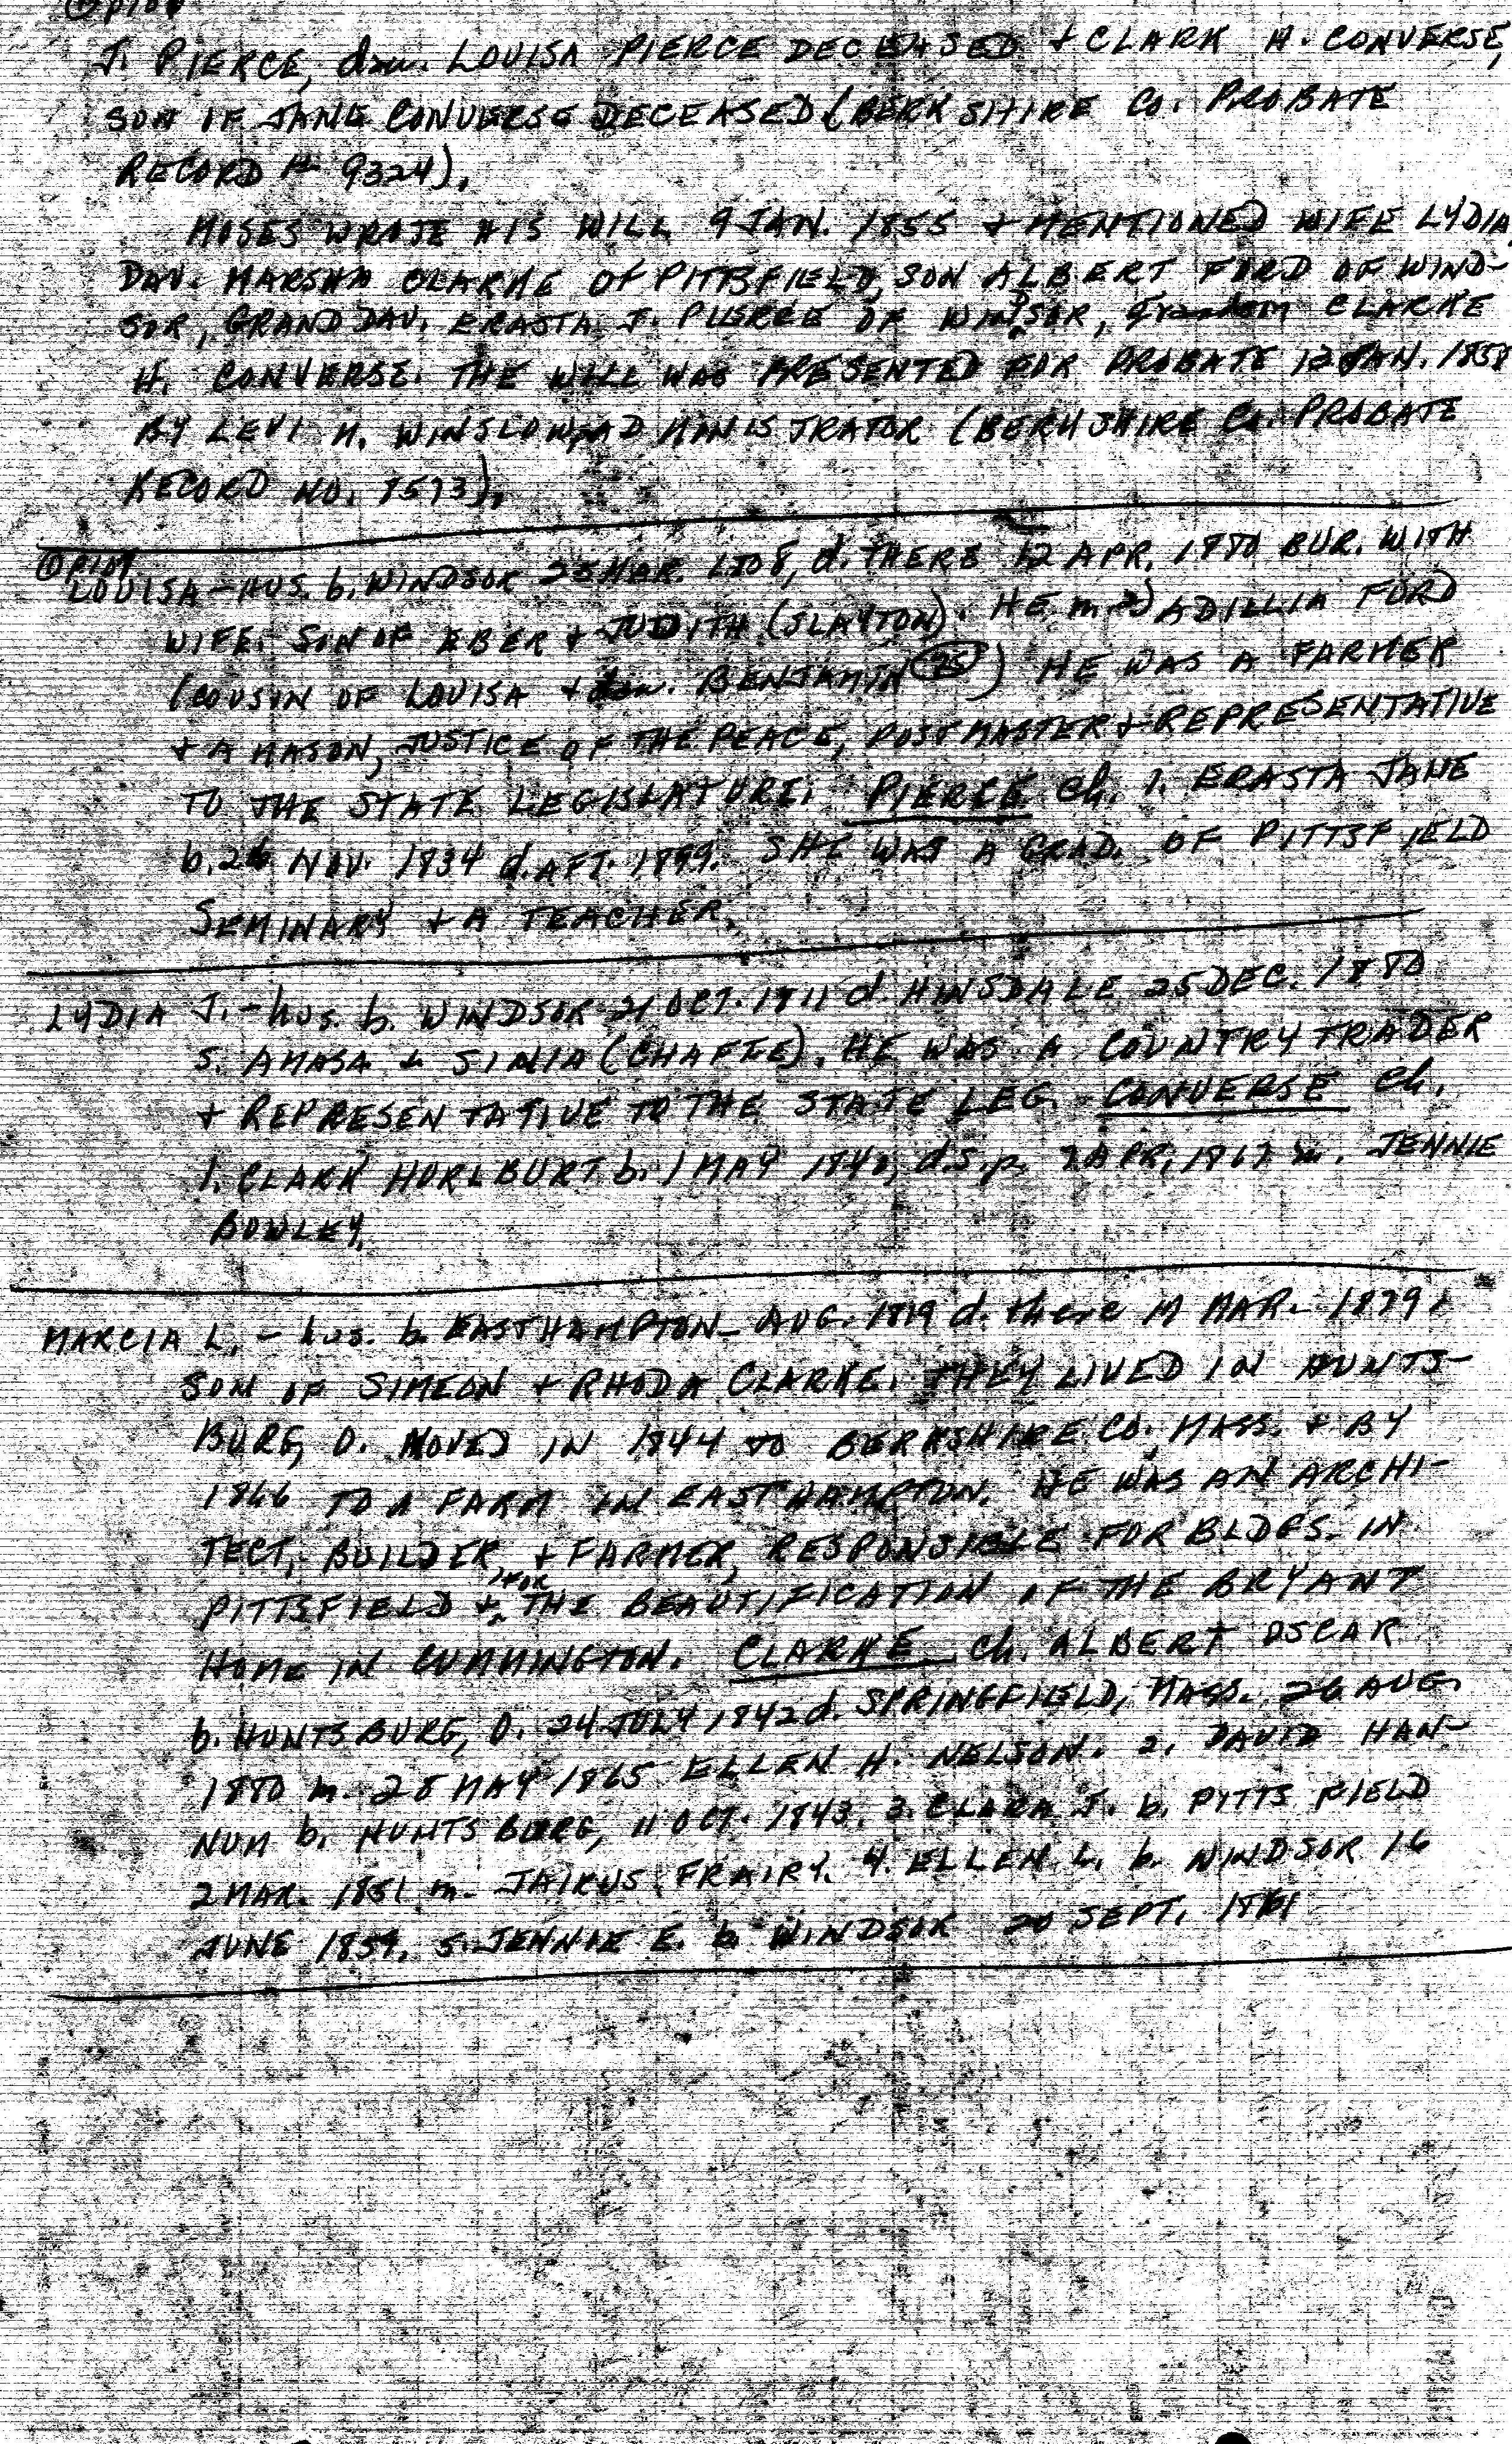 J. PIERCE, dau. LOUISA PIERCE DECEASED & CLARK H. CONVERSE,
SON OF JANE CONVERSE DECEASED (BERKSHIRE CO. PROBATE
RECORD # 9324).
MOSES WROTE HIS WILL 9 JAN. 1855 & MENTIONED WIFE LYDIA,
DAU. MARSHA CLARKE OF PITTSFIELD, SON ALBERT FORD OF WIND-
SOR, GRANDDAU. ERASTA J. PIERCE OF WINDSOR, grandson CLARKE
H. CONVERSE. THE WILL WAS PRESENTED FOR PROBATE 12 JAN. 1858
BY LEVI N. WINSLOW, ADMINISTRATOR (BERKSHIRE Co. PROBATE
RECORD NO. 8573).
LOUISA - HUS. b. WINDSOR 25 MAR. 1808, d. THERE 12 APR. 1880 BUR. WITH
WIFE. SON OF EBER & JUDITH (SLAYTON). HE m. 2) ADILLIA FORD
(COUSIN OF LOUISA & dau. BENJAMIN 25) HE WAS A FARMER
& A MASON, JUSTICE OF THE PEACE, POSTMASTER & REPRESENTATIVE
TO THE STATE LEGISLATURE. PIERCE ch. 1. ERASTA JANE
b. 26 NOV. 1834 d. AFT. 1899. SHE WAS A GRAD. OF PITTSFIELD
SEMINARY & A TEACHER.
LYDIA J. - hus. b. WINDSOR 21 OCT. 1811 d. HINSDALE 25 DEC. 1880
S. AMASA & SINIA (CHAFEE). HE WAS A COUNTRY TRADER
& REPRESENTATIVE TO THE STATE LEG. CONVERSE ch.
1. CLARK HURLBURT b. 1 MAY 1840, d.s.p. 7 APR. 1867 m. JENNIE
BOWLEY.
MARCIA L. - hus. b. EASTHAMPTON - AUG. 1819 d. there MAR. 1879.
SON OF SIMEON & RHODA CLARKE. THEY LIVED IN HUNTS-
BURG, O. MOVED IN 1844 TO BERKSHIRE CO. MASS. & BY
1866 TO A FARM IN EASTHAMPTON. HE WAS AN ARCHI-
TECT, BUILDER, & FARMER, RESPONSIBLE FOR BLDGS. IN
PITTSFIELD & FOR THE BEAUTIFICATION OF THE BRYANT
HOME IN CUMMINGTON. CLARKE ch. ALBERT OSCAR
b. HUNTSBURG, O. 24 JULY 1842 d. SPRINGFIELD, MASS. 26 AUG.
1880 m. 28 MAY 1865 ELLEN H. NELSON. 2. DAVID HAN-
NUM b. HUNTSBURG, 11 OCT. 1843. 3. CLARA J. b. PITTSFIELD
2 MAR. 1851 m. JAIRUS FRAIRY. 4. ELLEN L. b. WINDSOR 16
JUNE 1859. 5. JENNIE E. b. WINDSOR 20 SEPT. 1861